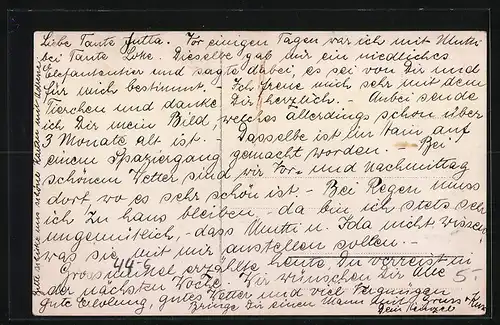 Liebe Tante Jutta. Vor einigen Tagen war ich mit Mutti
bei Tante Lotte. Dieselbe gab mir ein niedliches
Elefantentier und sagte dabei, es sei von Dir und
für mich bestimmt. Ich freue mich sehr mit dem
Tierchen und danke Dir herzlich. - Anbei sende
ich Dir mein Bild, welches allerdings schon über
3 Monate alt ist. - Dasselbe ist im Hain auf
einem Spaziergang gemacht worden. - Bei
schönem Wetter sind wir Vor- und Nachmittag
dort wo es sehr schön ist. - Bei Regen muss
ich zu haus bleiben, - da bin ich stets sehr
ungemütlich, - dass Mutti u. Ida nicht wissen,
was sie mit mir anstellen sollen. -
Grossmuttel erzählte heute, Du verreist in
der nächsten Woche. Wir wünschen Dir Alle
gute Erholung, gutes Wetter und viel Vergnügen
Bringe Dir einen Mann mit! Gruss + Kuss
Dein
14-6
5-